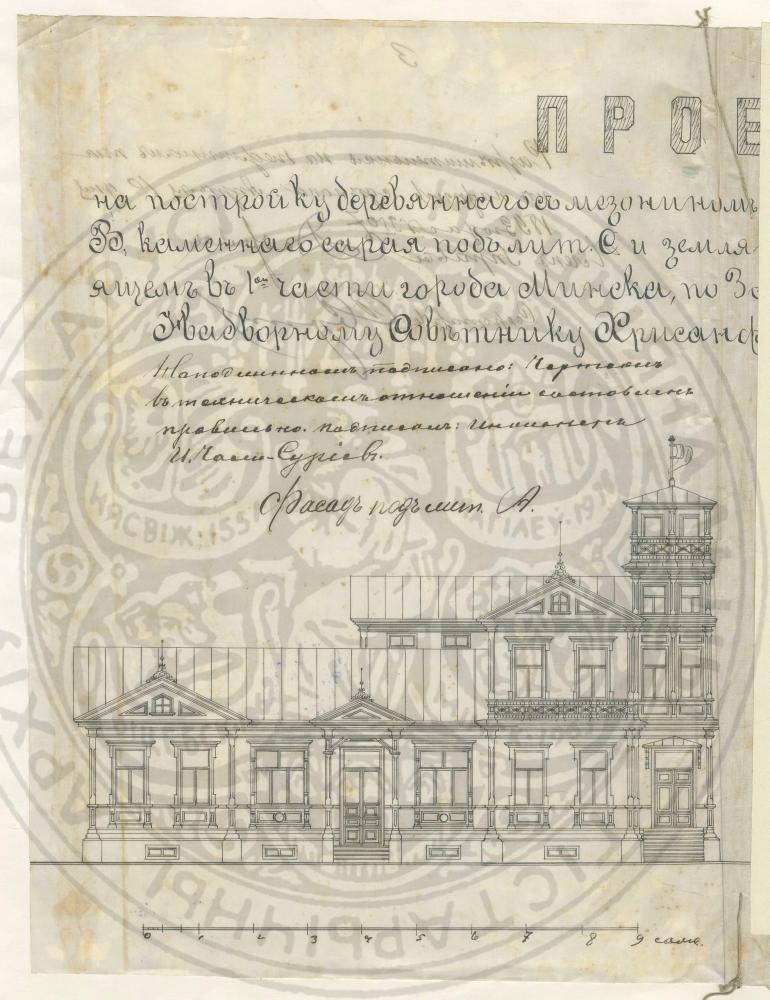 ПРОЕ
на постройку деревяннаго съ мезониномъ
В, каменнаго сарая подъ лит. С. и земля-
ящемъ въ 1ой части города Минска, по За
Надворному Совѣтнику Хрисанф
На подлинномъ подписано: Чертежъ
въ техническомъ отношеніи составленъ
правильно. подписалъ: Инженеръ
Фасадъ подъ лит. А.
0 1 2 3 4 5 6 7 8 9 саж.